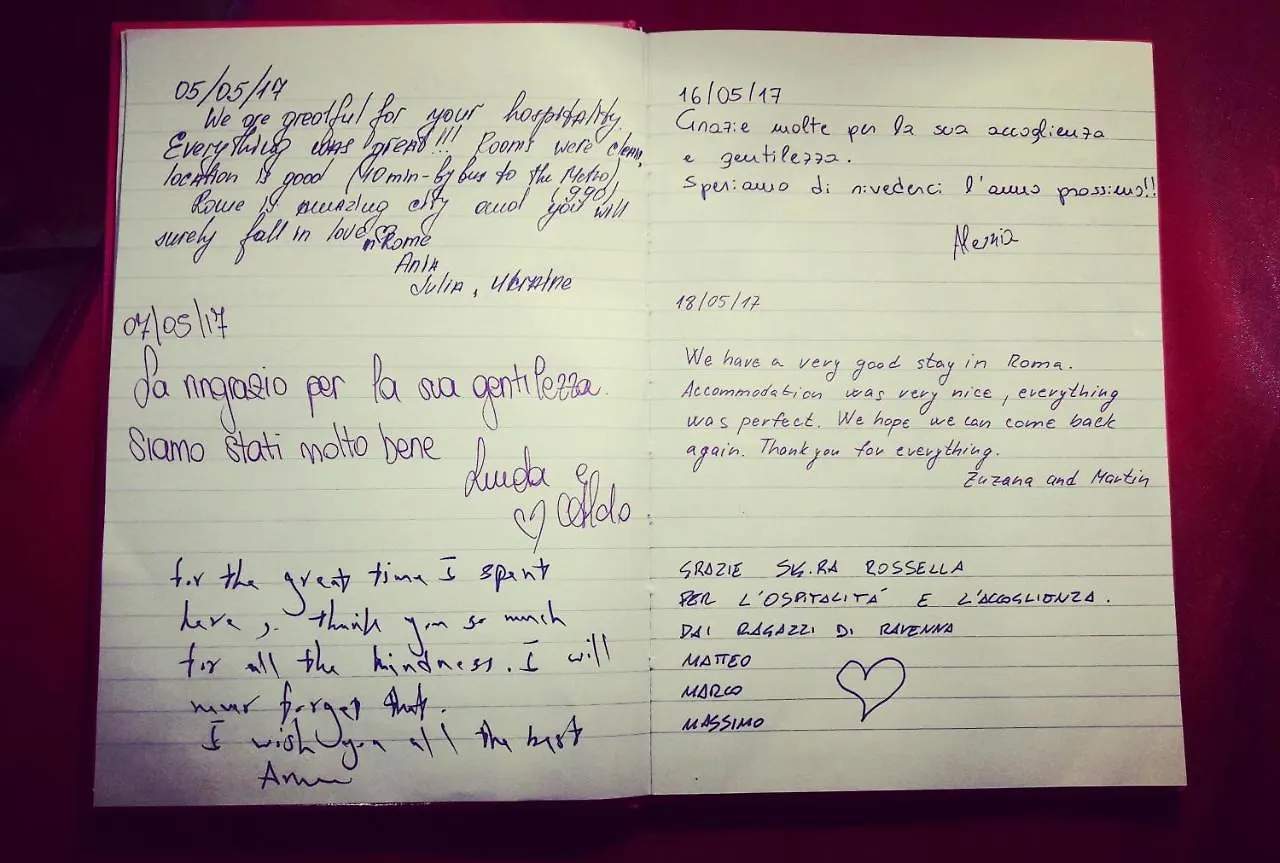 05/05/17
We are greatful for your hospitality.
Everything was great!!! Rooms were clean,
location is good (40min-by bus to the Metro)
(990)
Rome is amazing city and you will
surely fall in love
in Rome
Ania
Julia, Ukraine
07/05/17
La ringrazio per la sua gentilezza.
Siamo stati molto bene
Linda e
Aldo
for the great time I spent
here, thank you so much
for all the kindness. I will
never forget that.
I wish you all the best
16/05/17
Grazie molte per la sua accoglienza
e gentilezza.
Speriamo di rivederci l'anno prossimo!!
18/05/17
We have a very good stay in Roma.
Accommodation was very nice, everything
was perfect. We hope we can come back
again. Thank you for everything.
Zuzana and Martin
GRAZIE SIG.RA ROSSELLA
PER L'OSPITALITÁ E L'ACCOGLIENZA.
DAI RAGAZZI DI RAVENNA
MATTEO
MARCO
MASSIMO